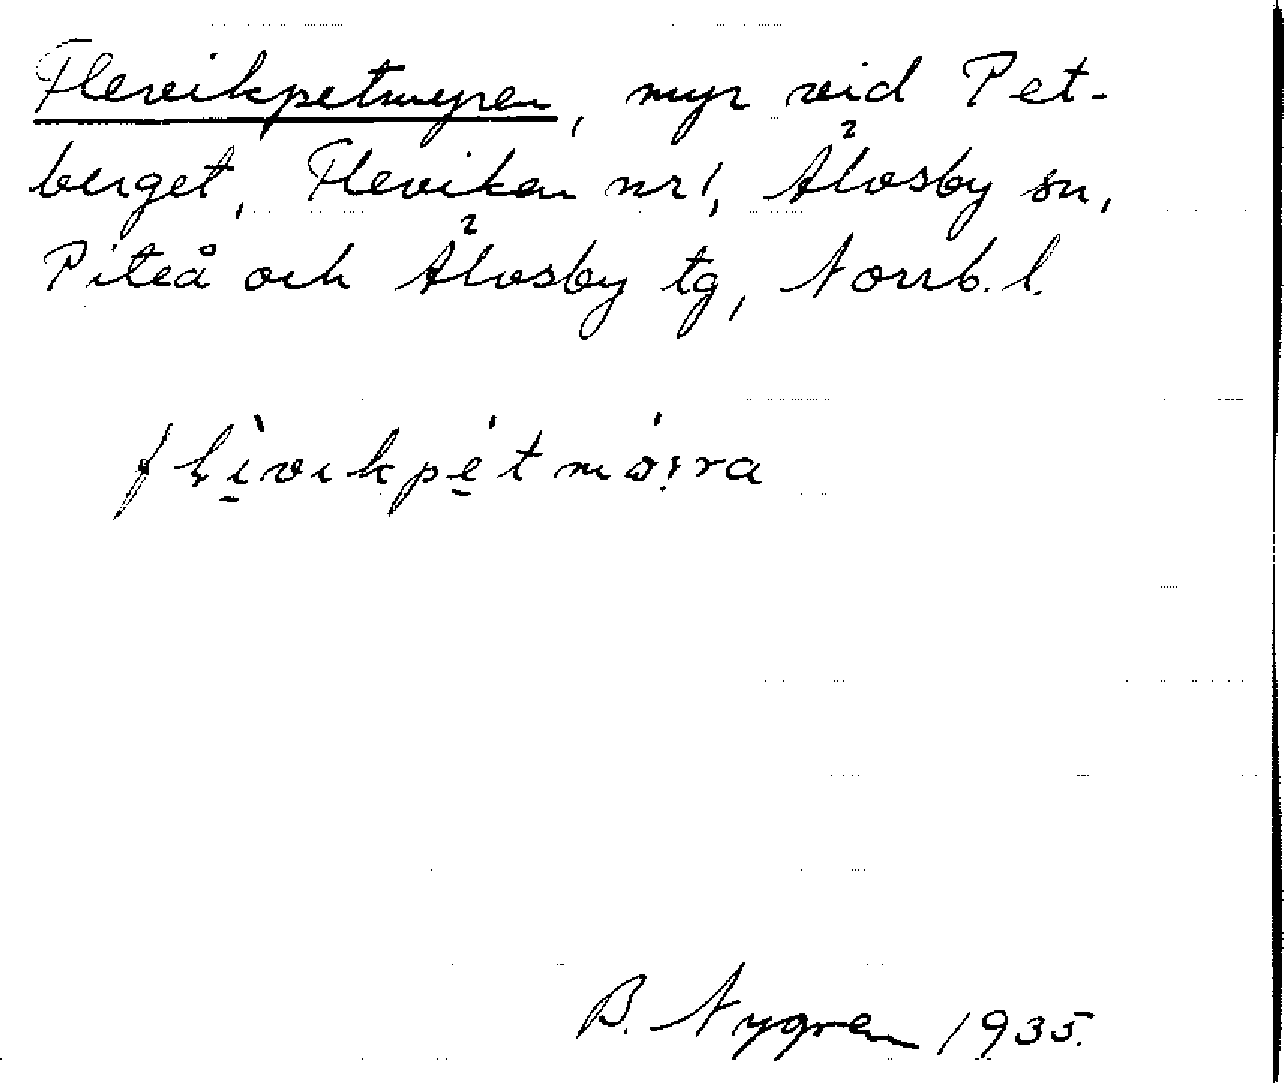 Flevikpetmyren, myr vid Pet-
berget, Fleviken nr 1, Älvsby sn,
Piteå och Älvsby tg, Norrb. l.
B. Nygren 1935.